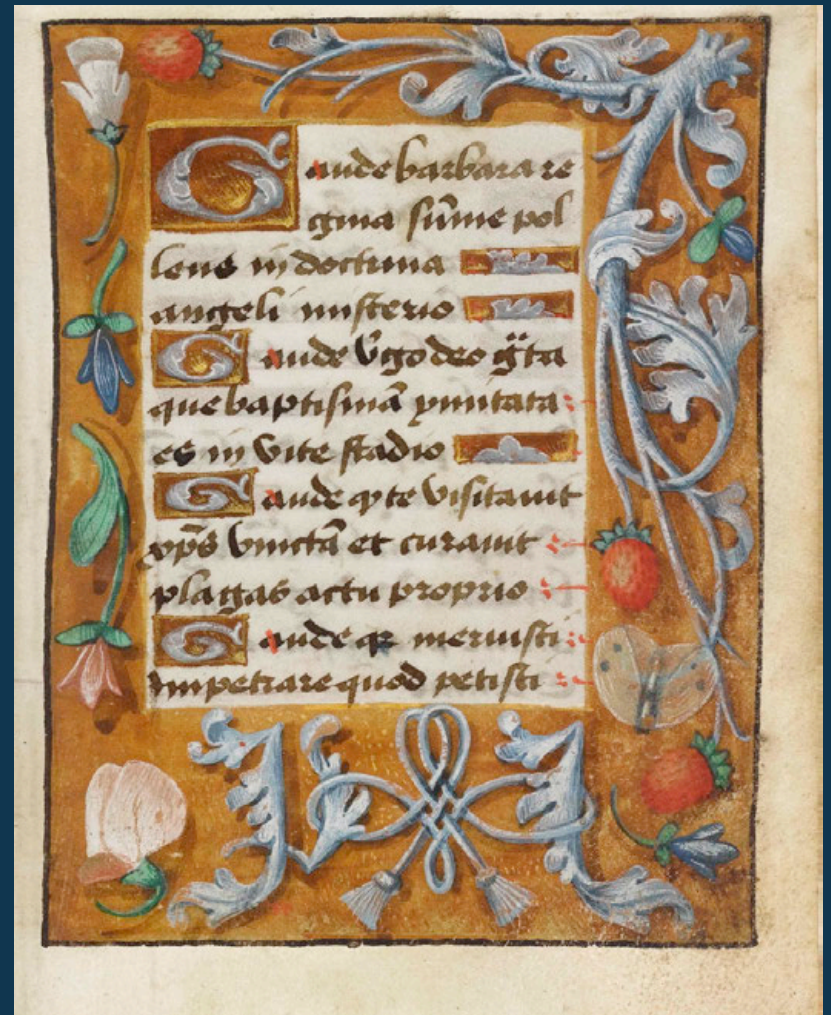 Gaude barbara re
gina sūme pol
lens in doctrina
angeli misterio
Gaude v̾go deo gͣta
que baptismā ymitata
es in vite stadio
Gaude qꝫ te visitauit
xp̄s vinctā et curauit
plagas actu proprio
Gaude qꝛ meruisti
impetrare quod petisti